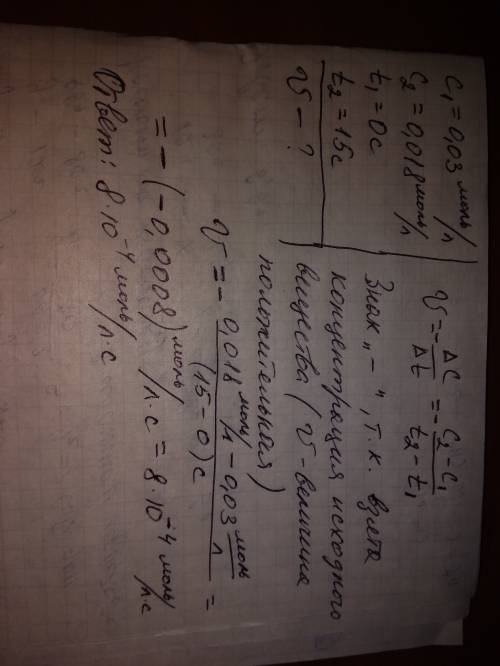 C₁ = 0,03 моль/л
C₂ = 0,018 моль/л
t₁ = 0с
t₂ = 15с
V - ?
V = - ΔC/Δt = - (C₂ - C₁)/(t₂ - t₁)
Знак „-", т.к. взята
концентрация исходного
вещества (V - величина
положительная)
V = - (0,018 моль/л - 0,03 моль/л)/((15 - 0)с) =
= - (-0,0008) моль/л·с = 8·10⁻⁴ моль/л·с
Ответ: 8·10⁻⁴ моль/л·с